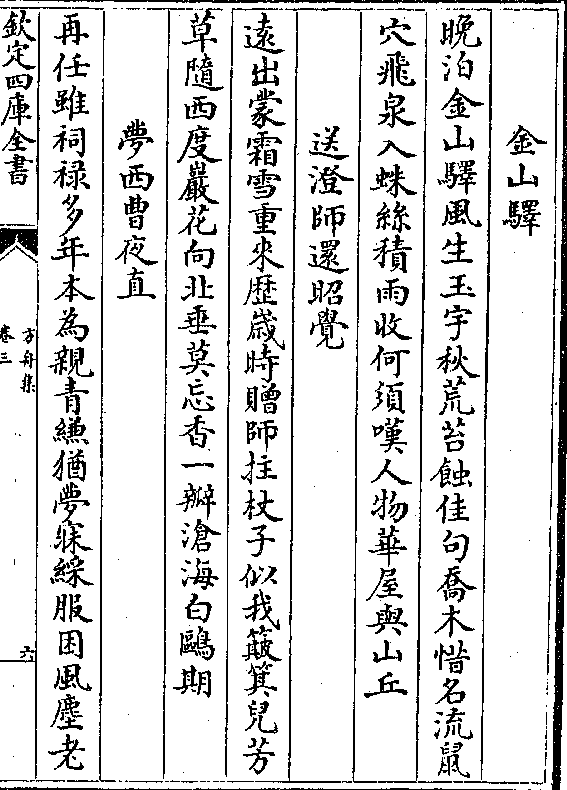 金山驛
晚泊金山驛風生玉宇秋荒苔蝕佳句喬木惜名流鼠
穴飛泉入蛛絲積雨收何須嘆人物華屋與山丘
送澄師還昭覺
遠出蒙霜雪重來歴歲時贈師拄杖子似我簸箕兒芳
草隨西度巖花向北垂莫忘香一瓣滄海白鷗期
夢西曹夜直
再任雖祠禄多年本為親青縑猶夢寐綵服困風塵老
欽定四庫全書
方舟集
卷三
六